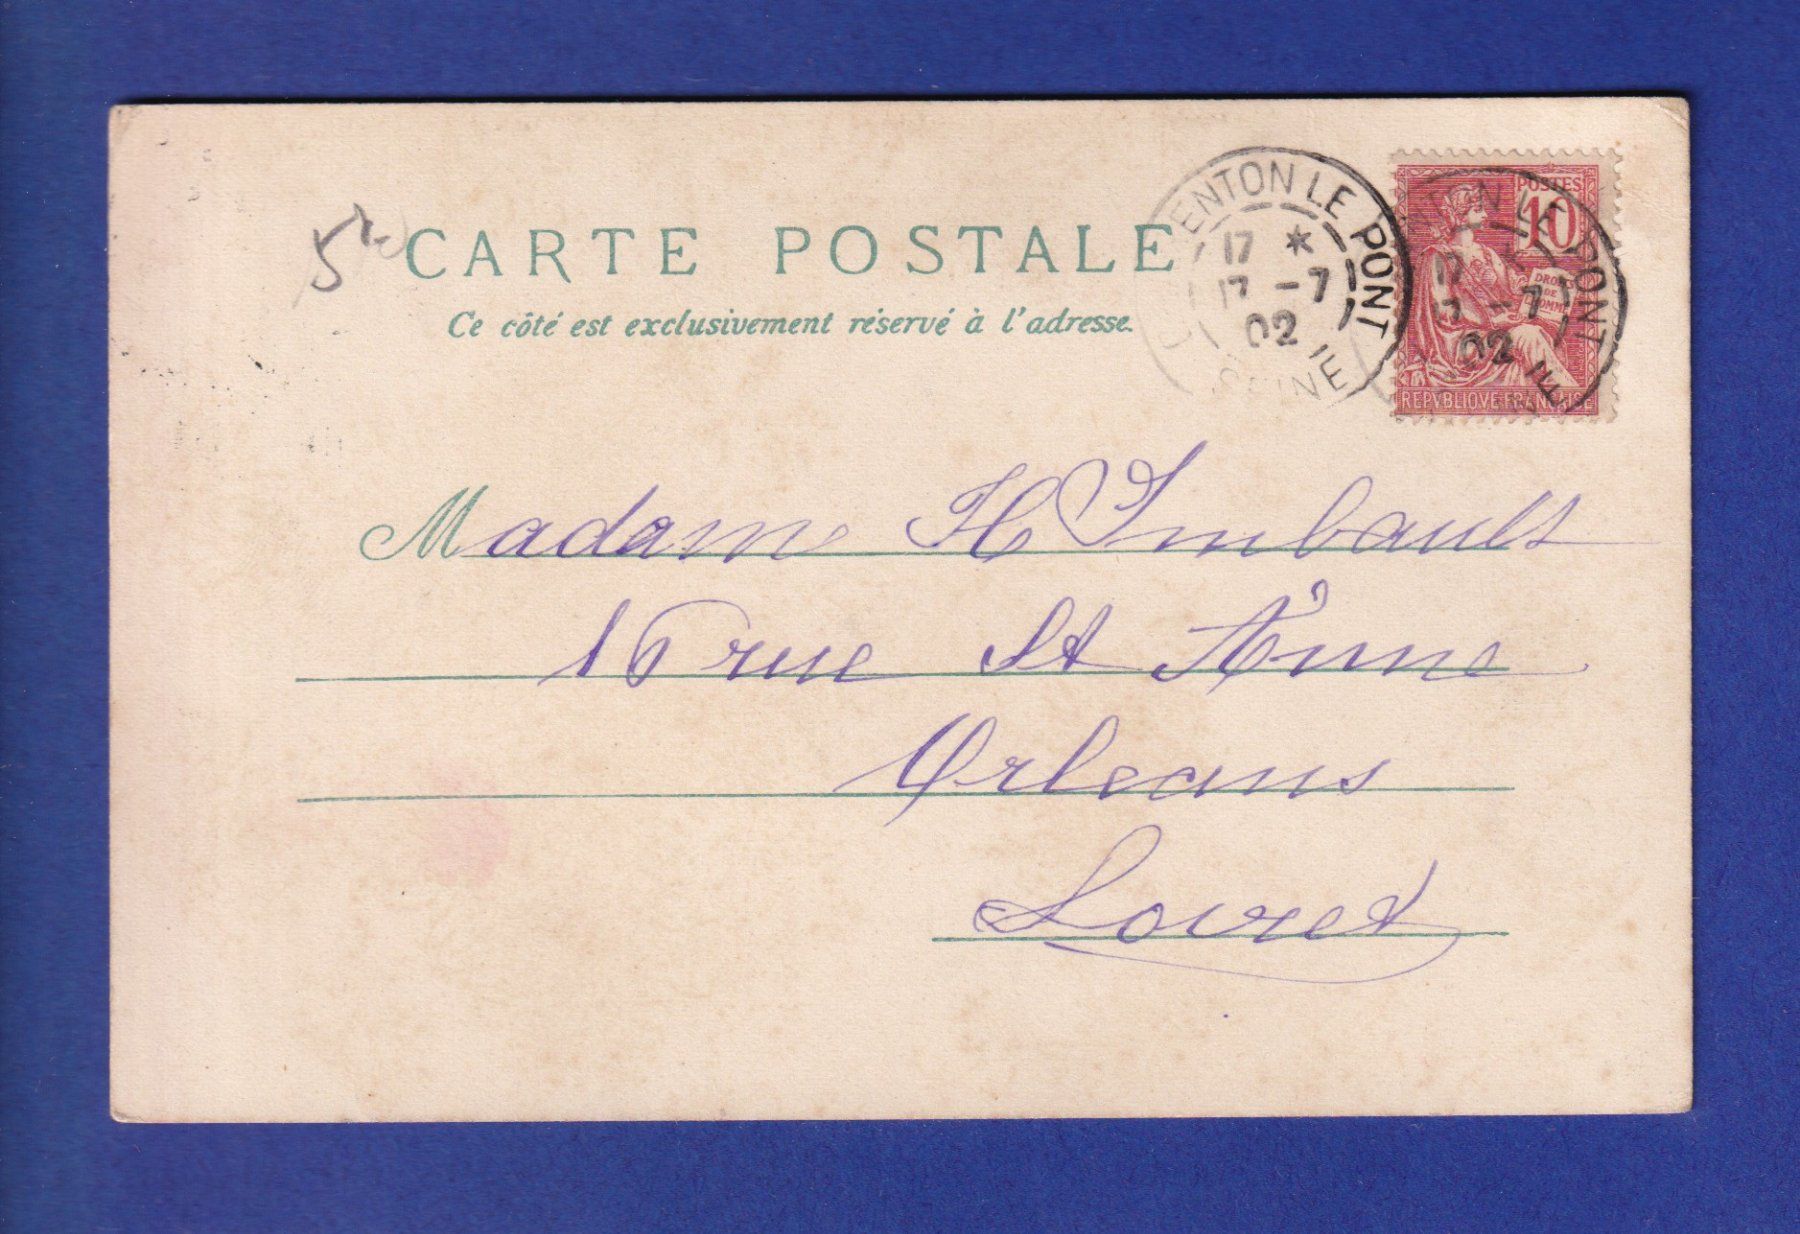 CARTE POSTALE
Ce côté est exclusivement réservé à l'adresse.
ENTON LE PONT
17 *
17 -7
02
SEINE
POSTES
10
DROITS
DE
L'HOMME
REPVBLIQVE FRANÇAISE
NTON LE PONT
17
17 -7
02
NE
Madame H Imbault
16 rue St Anne
Orleans
Loiret